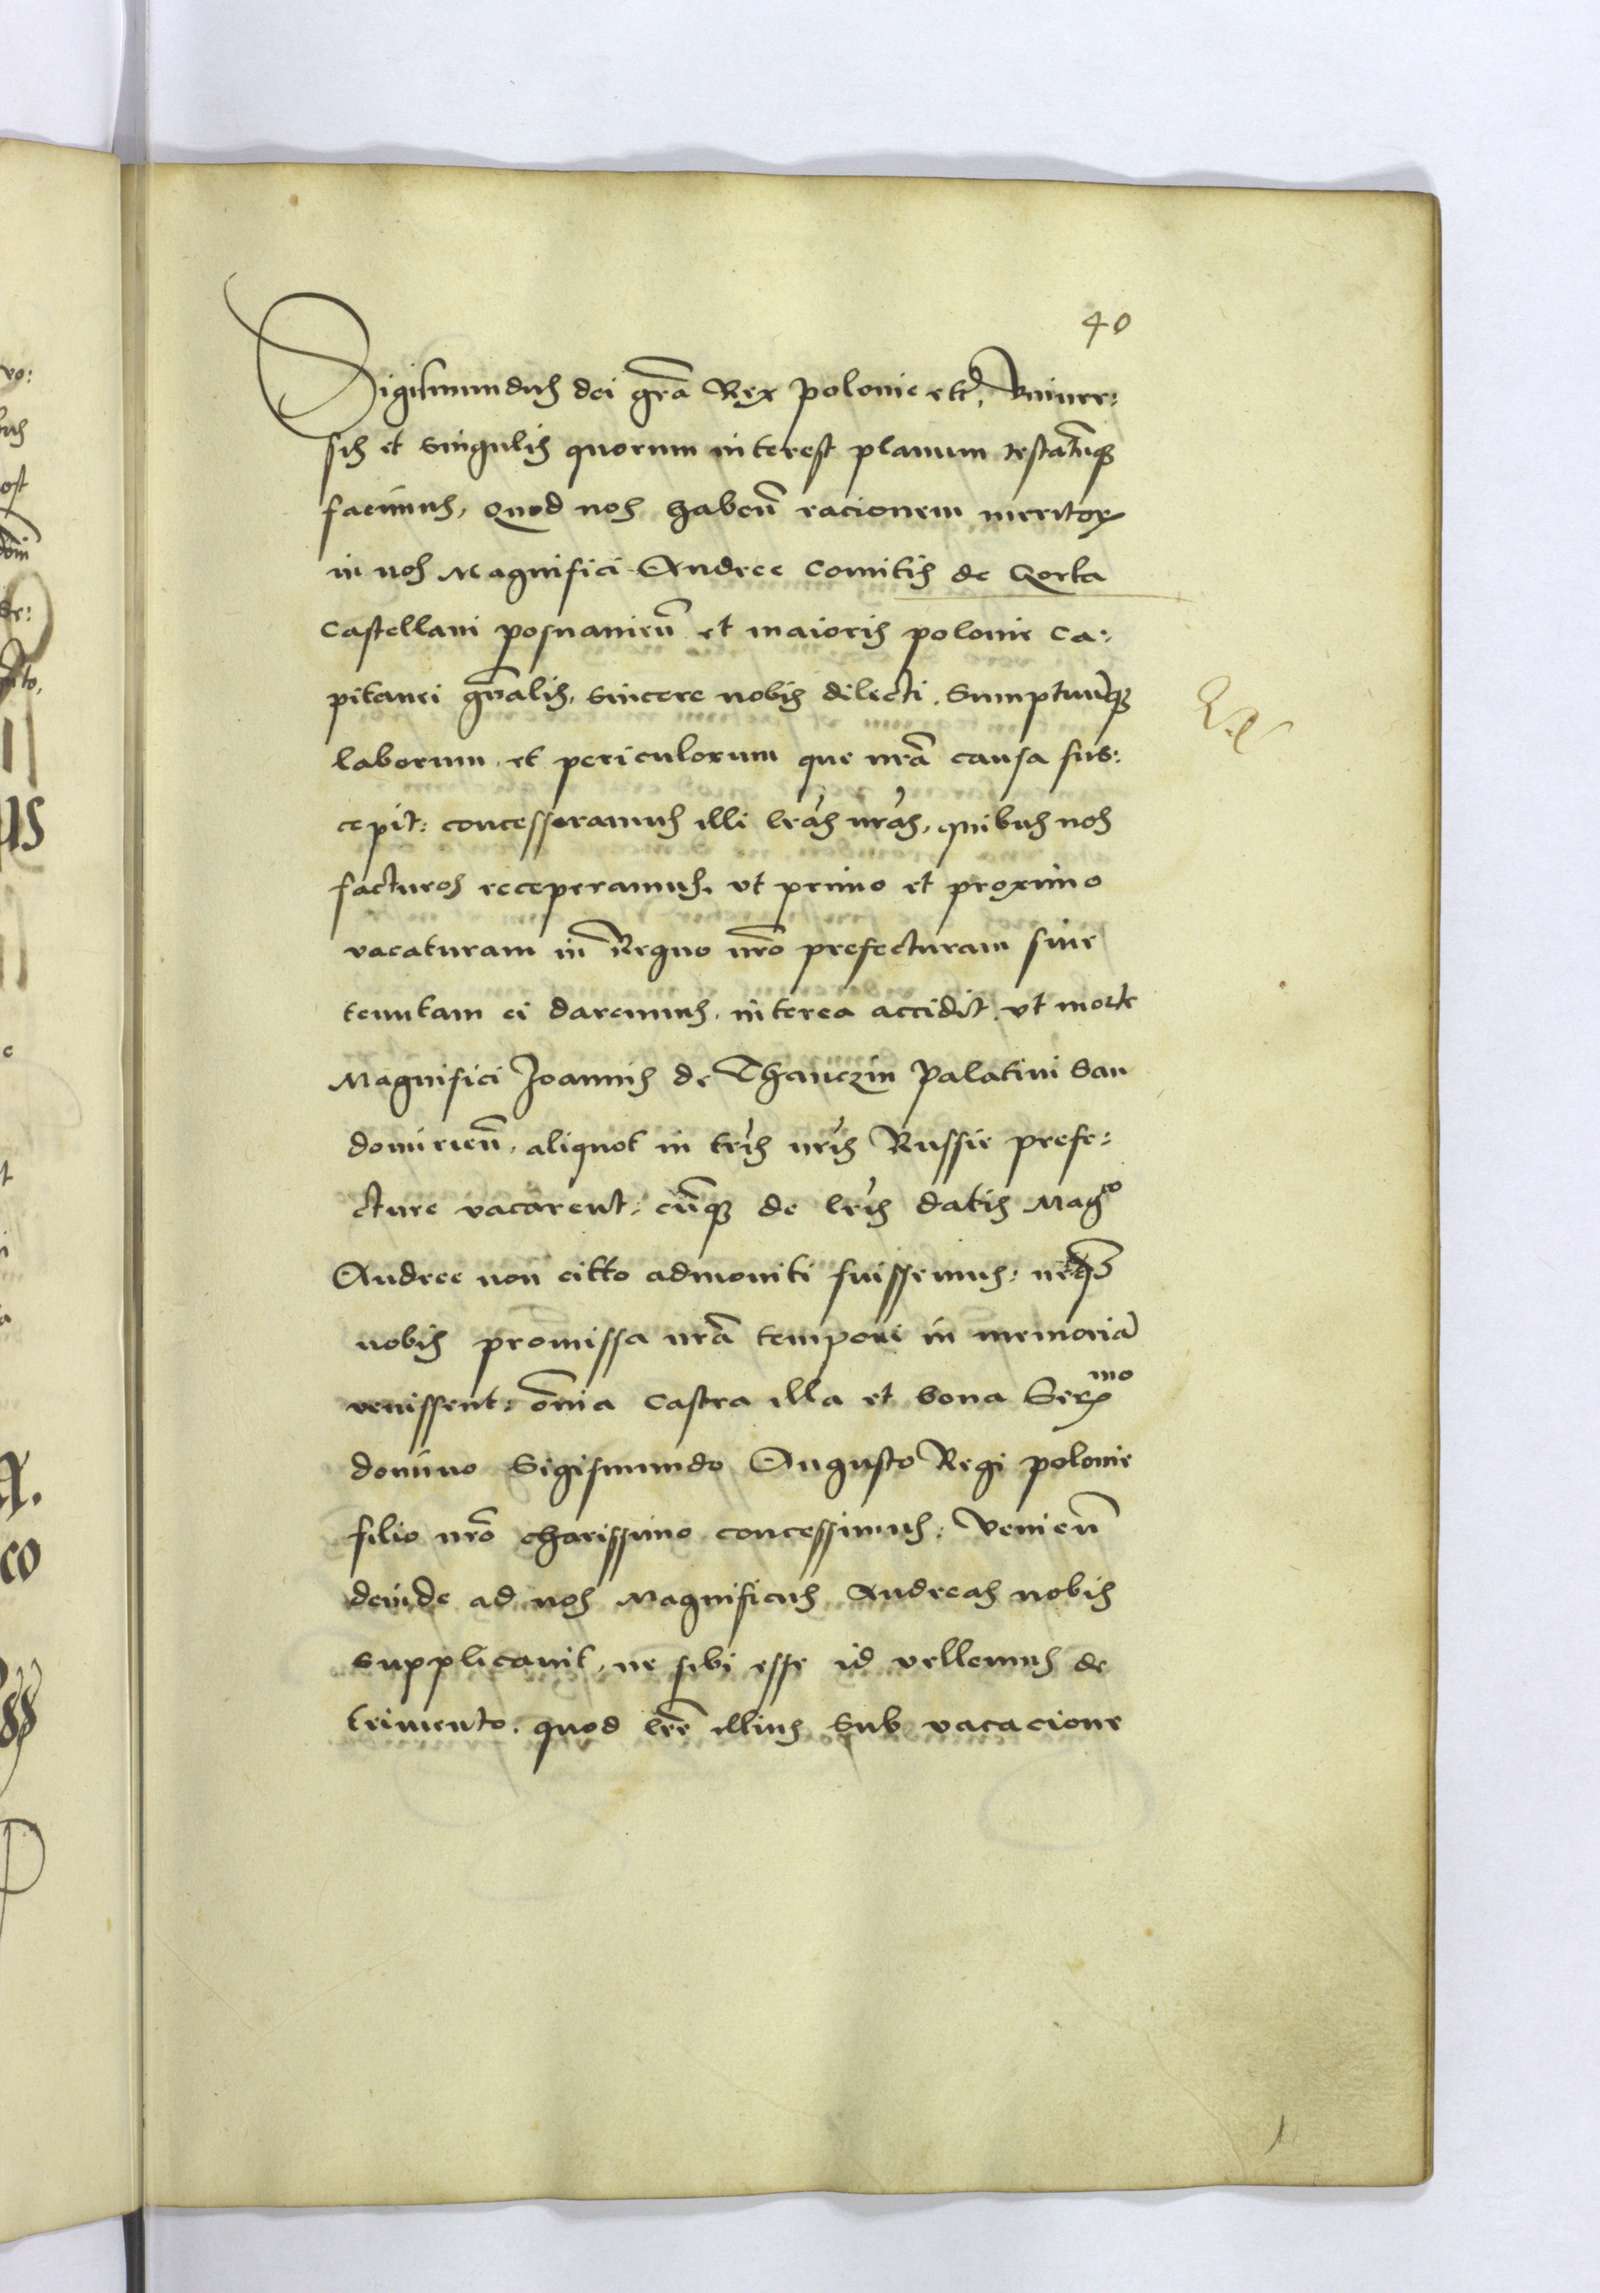 40
Sigismundus dei grã Rex polonie etc̃. Vniuer:
sis et singulis quorum interest planum testatũq₃
facimus, Quod nos habeñ racionem meritoꝝ
in nos Magnifici Andree Comitis de Gorka
Castellani posnanieñ et maioris polonie Ca:
pitanei gñalis, sincere nobis dilecti. Sumptuũq₃
laborum et periculorum que nrã causa sus:
cepit: concesseramus illi lrãs nrãs, quibus nos
facturos receperamus, vt primo et proximo
vacaturam in Regno nrõ prefecturam siue
tenutam ei daremus, interea accidit, vt morte
Magnifici Joannis de Thanczin Palatini San
domirieñ, aliquot in tr̃is nr̃is Russie prefe:
cture vacarent: cũq₃ de lr̃is datis Mag^co
Andree non citto admoniti fuissemus: neq₃
nobis promissa nrã tempori in memoriã
venissent: õnia castra illa et bona Ser^mo
domino Sigismundo Augusto Regi polonie
filio nrõ charissimo concessimus: Venieñ
deinde ad nos Magnificus Andreas nobis
supplicauit, ne sibi esse id vellemus de
trimento, quod lrẽ illius sub vacacione